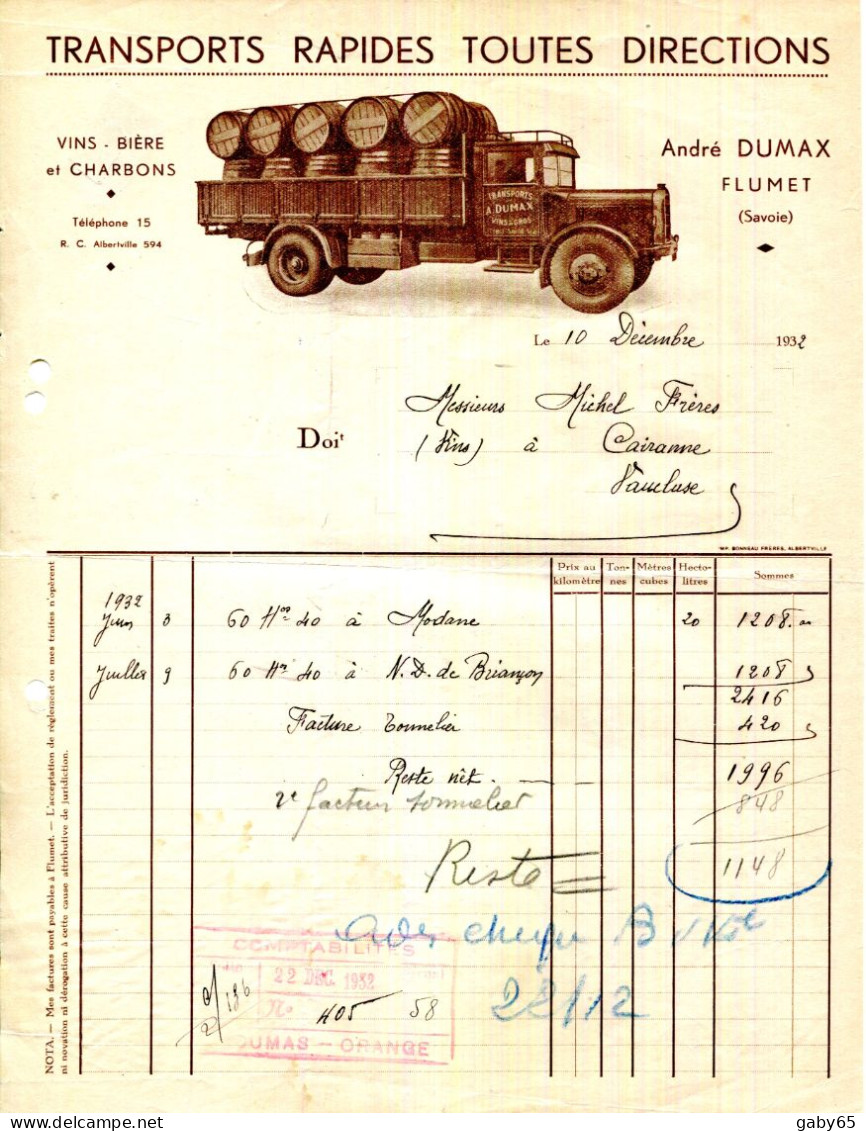 TRANSPORTS RAPIDES TOUTES DIRECTIONS
VINS - BIÈRE
et CHARBONS
Téléphone 15
R. C. Albertville 594
TRANSPORTS
A. DUMAX
André DUMAX
FLUMET
(Savoie)
Le 10 Décembre 1932
Doit Messieurs Michel Frères
(Vins) à Cairanne
Vaucluse
IMP. BONNEAU FRÈRES, ALBERTVILLE
Prix au kilomètre Ton-nes Mètres cubes Hecto-litres Sommes
1932
Juin 3 60 Hos 40 à Modane 20 1208.00
Juillet 9 60 Hos 40 à N.D. de Briançon 1208
2416
Facture Tonnelier 420
Reste nét. 1996
2e facture tonnelier 848
Reste 1148
cheque B
28/12
COMPTABILITÉS
22 DEC. 1932
No 405 58
DUMAS - ORANGE
NOTA. — Mes factures sont payables à Flumet. — L'acceptation de règlement ou mes traites n'opèrent
ni novation ni dérogation à cette cause attributive de juridiction.
gaby65